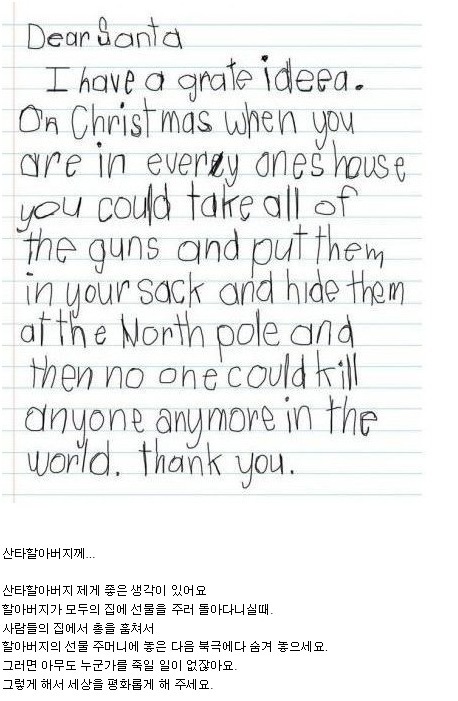 Dear Santa
I have a grate ideea.
On Christmas when you
are in everey ones house
you could take all of
the guns and put them
in your sack and hide them
at the North pole and
then no one could kill
anyone anymore in the
world. thank you.
산타할아버지께...
산타할아버지 제게 좋은 생각이 있어요
할아버지가 모두의 집에 선물을 주러 돌아다니실때.
사람들의 집에서 총을 훔쳐서
할아버지의 선물 주머니에 놓은 다음 북극에다 숨겨 놓으세요.
그러면 아무도 누군가를 죽일 일이 없잖아요.
그렇게 해서 세상을 평화롭게 해 주세요.